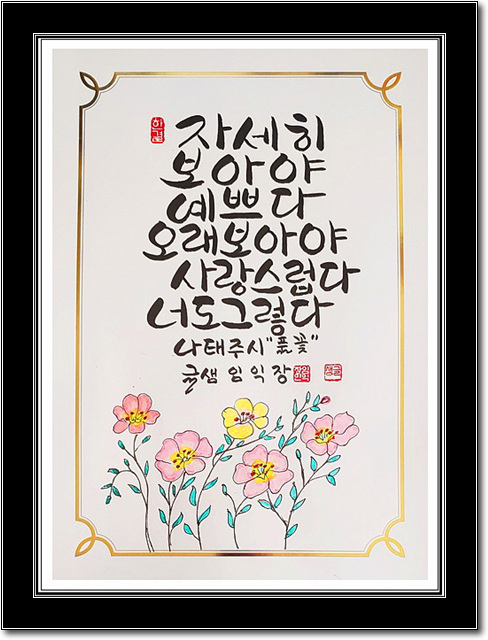 자세히
보아야
예쁘다
오래보아야
사랑스럽다
너도그렇다
나태주시"풀꽃"
글샘 임익장